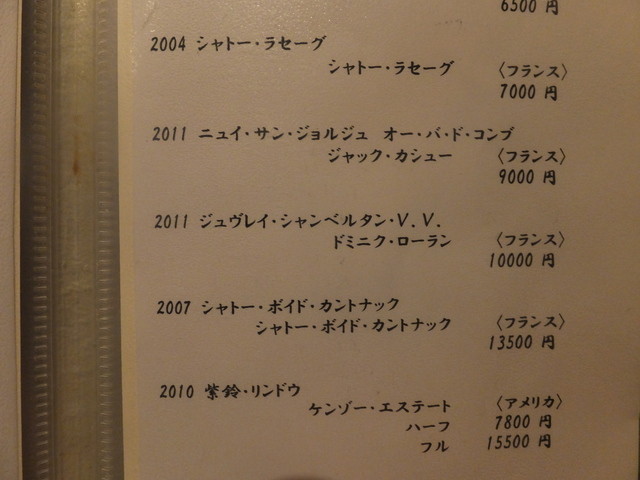 6500 円
2004 シャトー・ラセーグ
シャトー・ラセーグ 〈フランス〉
7000 円
2011 ニュイ・サン・ジョルジュ オー・バ・ド・コンブ
ジャック・カシュー 〈フランス〉
9000 円
2011 ジュヴレイ・シャンベルタン・V.V.
ドミニク・ローラン 〈フランス〉
10000 円
2007 シャトー・ボイド・カントナック
シャトー・ボイド・カントナック 〈フランス〉
13500 円
2010 紫鈴・リンドウ
ケンゾー・エステート 〈アメリカ〉
ハーフ 7800 円
フル 15500 円